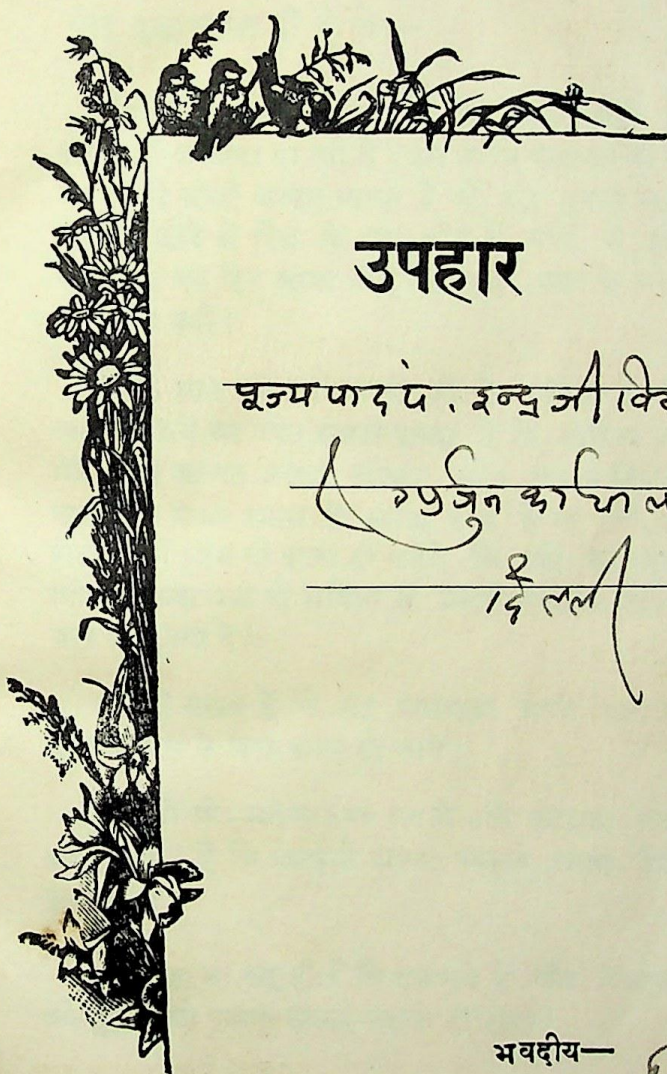 उपहार
पूज्य पाद पं. इन्द्र जी
अर्जुन कार्याल
दिल्ली
भवदीय—